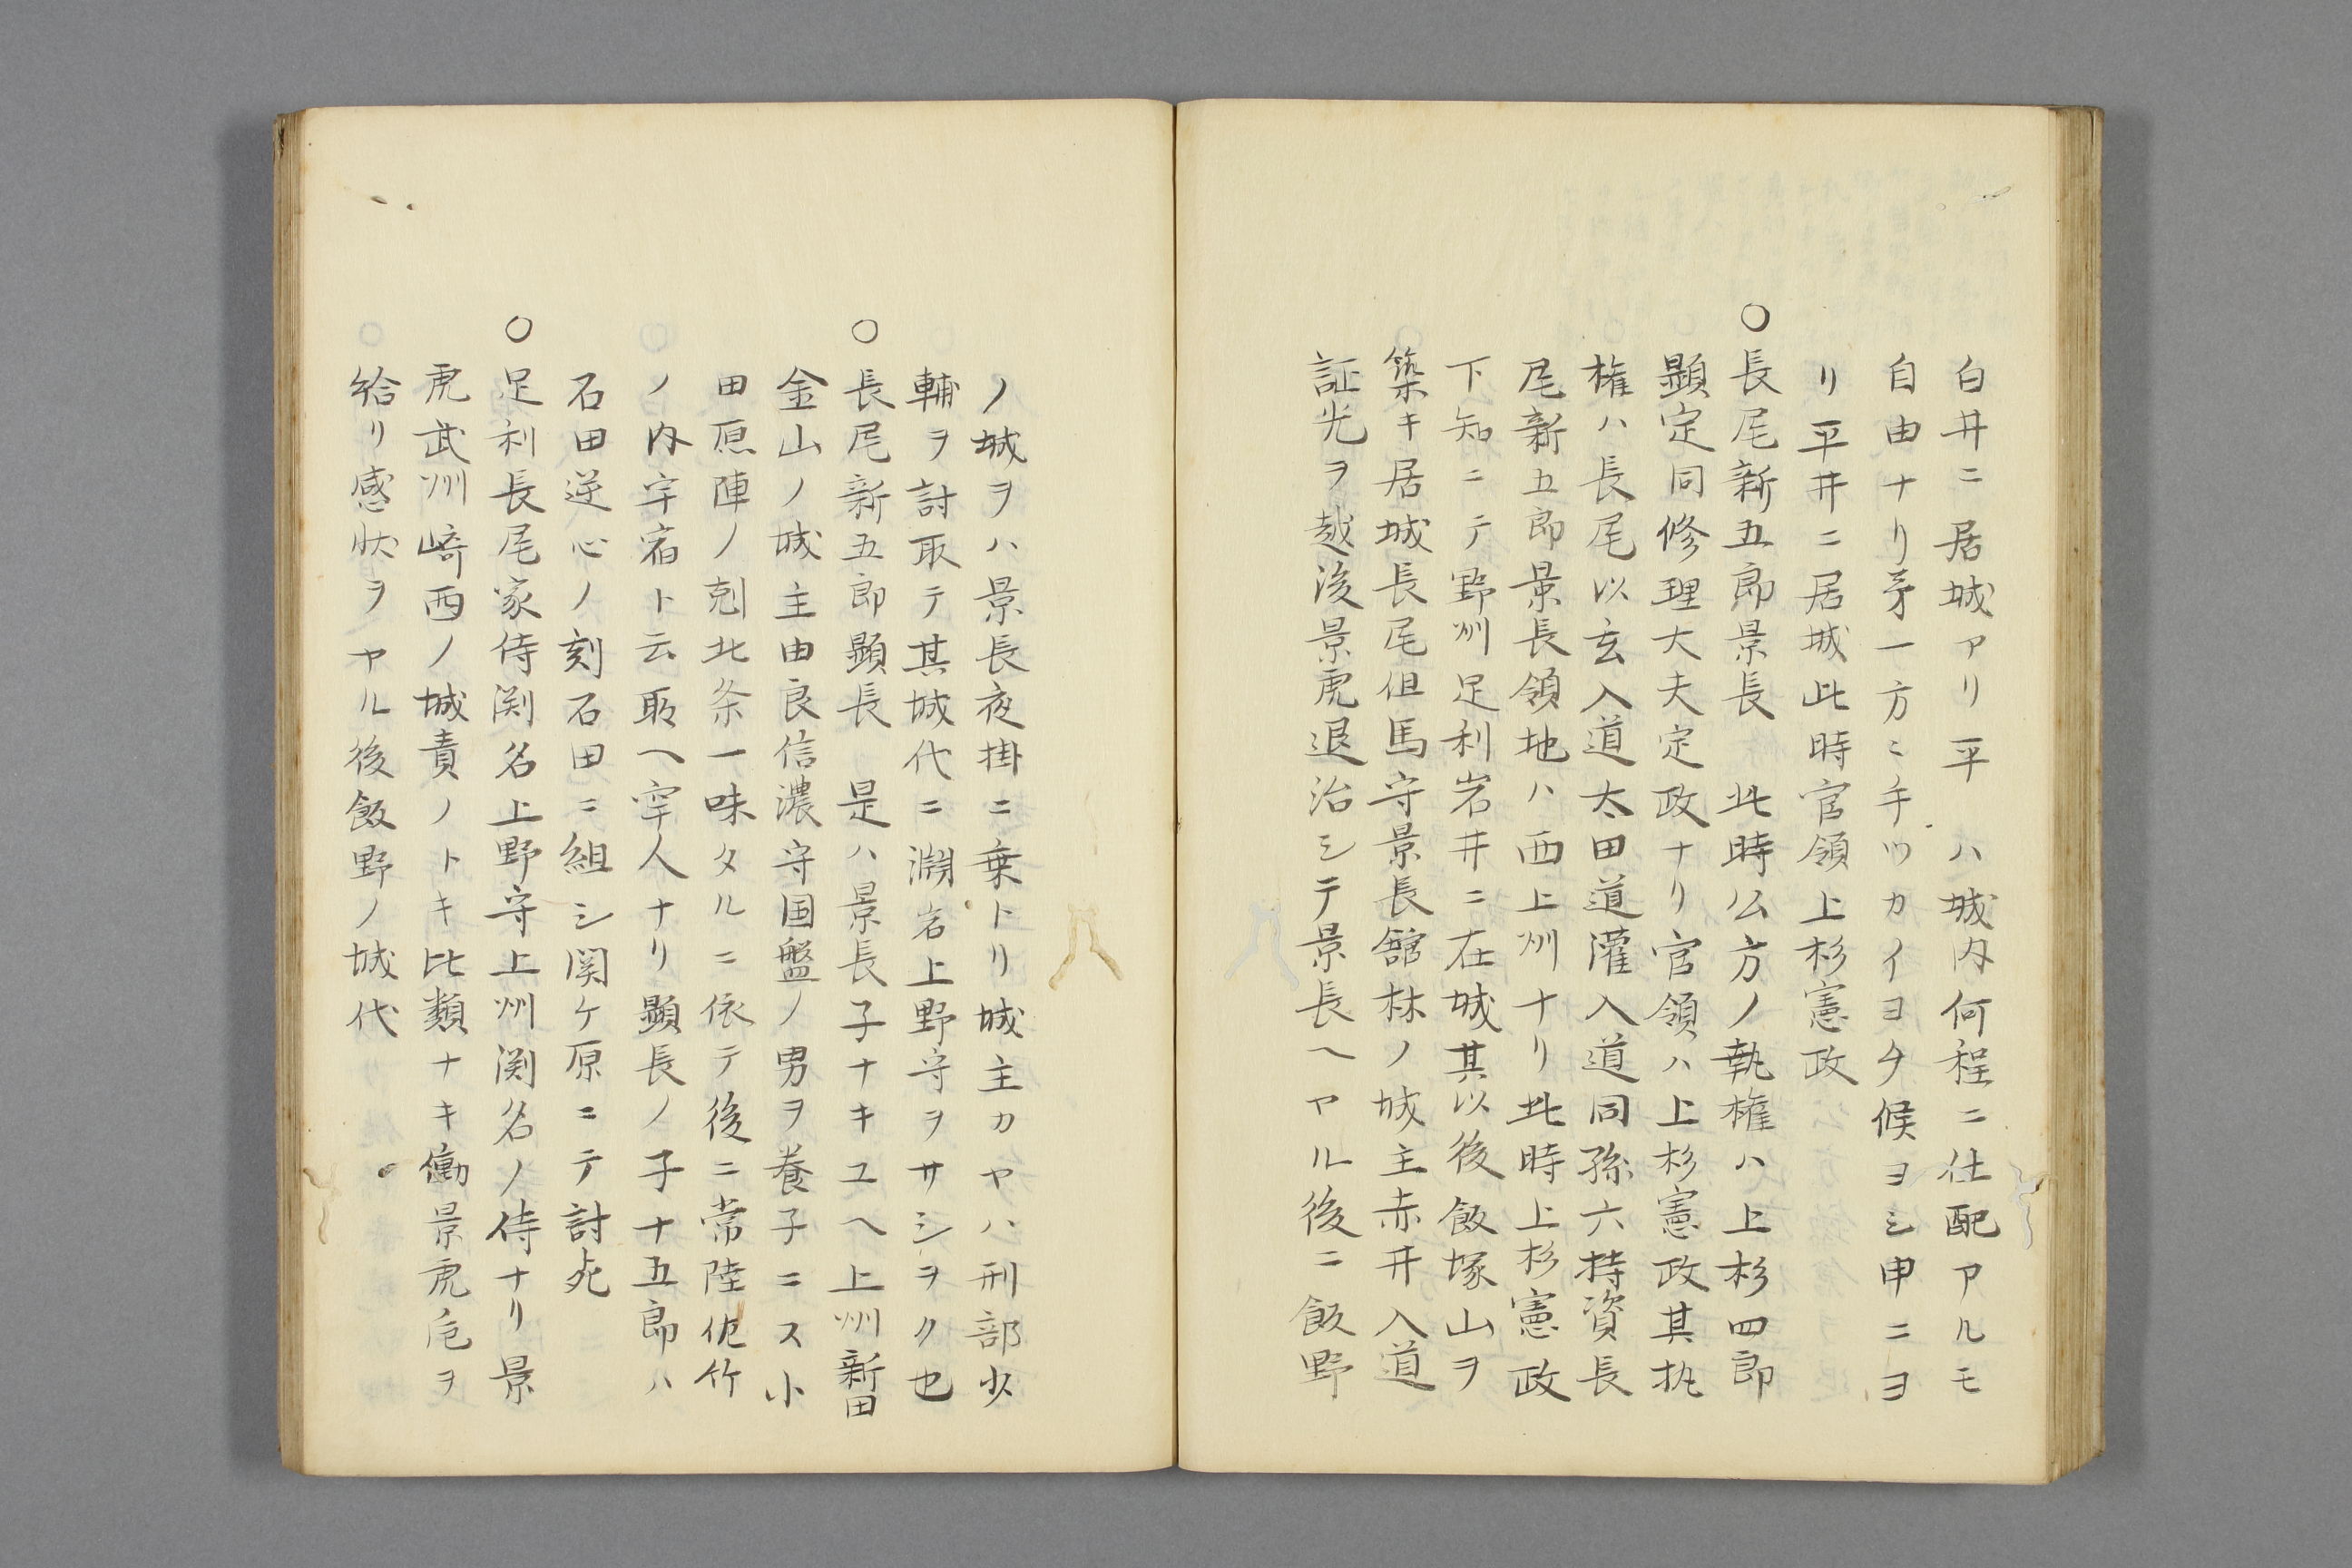 白井ニ居城アリ平　ハ城内何程ニ仕配アルモ
自由ナリ芽一方ニ手ツカイヨク候ヨシ申ニヨ
リ平井ニ居城此時官領上杉憲政
○長尾新五郎景長　此時公方ノ執権ハ上杉四郎
顕定同修理大夫定政ナリ官領ハ上杉憲政其执
権ハ長尾以玄入道太田道灌入道同孫六持資長
尾新五郎景長領地ハ西上州ナリ此時上杉憲政
下知ニテ野州足利岩井ニ在城其以後飯塚山ヲ
築キ居城長尾但馬守景長舘林ノ城主赤井入道
証光ヲ越後景虎退治シテ景長ヘヤル後ニ飯野
ノ城ヲハ景長夜掛ニ乗トリ城主カヤハ刑部少
輔ヲ討取テ其城代ニ淵岩上野守ヲサシヲク也
○長尾新五郎顕長　是ハ景長子ナキユヘ上州新田
金山ノ城主由良信濃守国盤ノ男ヲ養子ニス小
田原陣ノ剋北条一味タルニ依テ後ニ常陸佐竹
ノ内宇宿ト云所ヘ窂人ナリ顕長ノ子十五郎ハ
石田逆心ノ刻石田ニ組シ関ケ原ニテ討死
○足利長尾家侍渕名上野守上州渕名ノ侍ナリ景
虎武州﨑西ノ城責ノトキ比類ナキ働景虎疵ヲ
給リ感状ヲヤル後飯野ノ城代